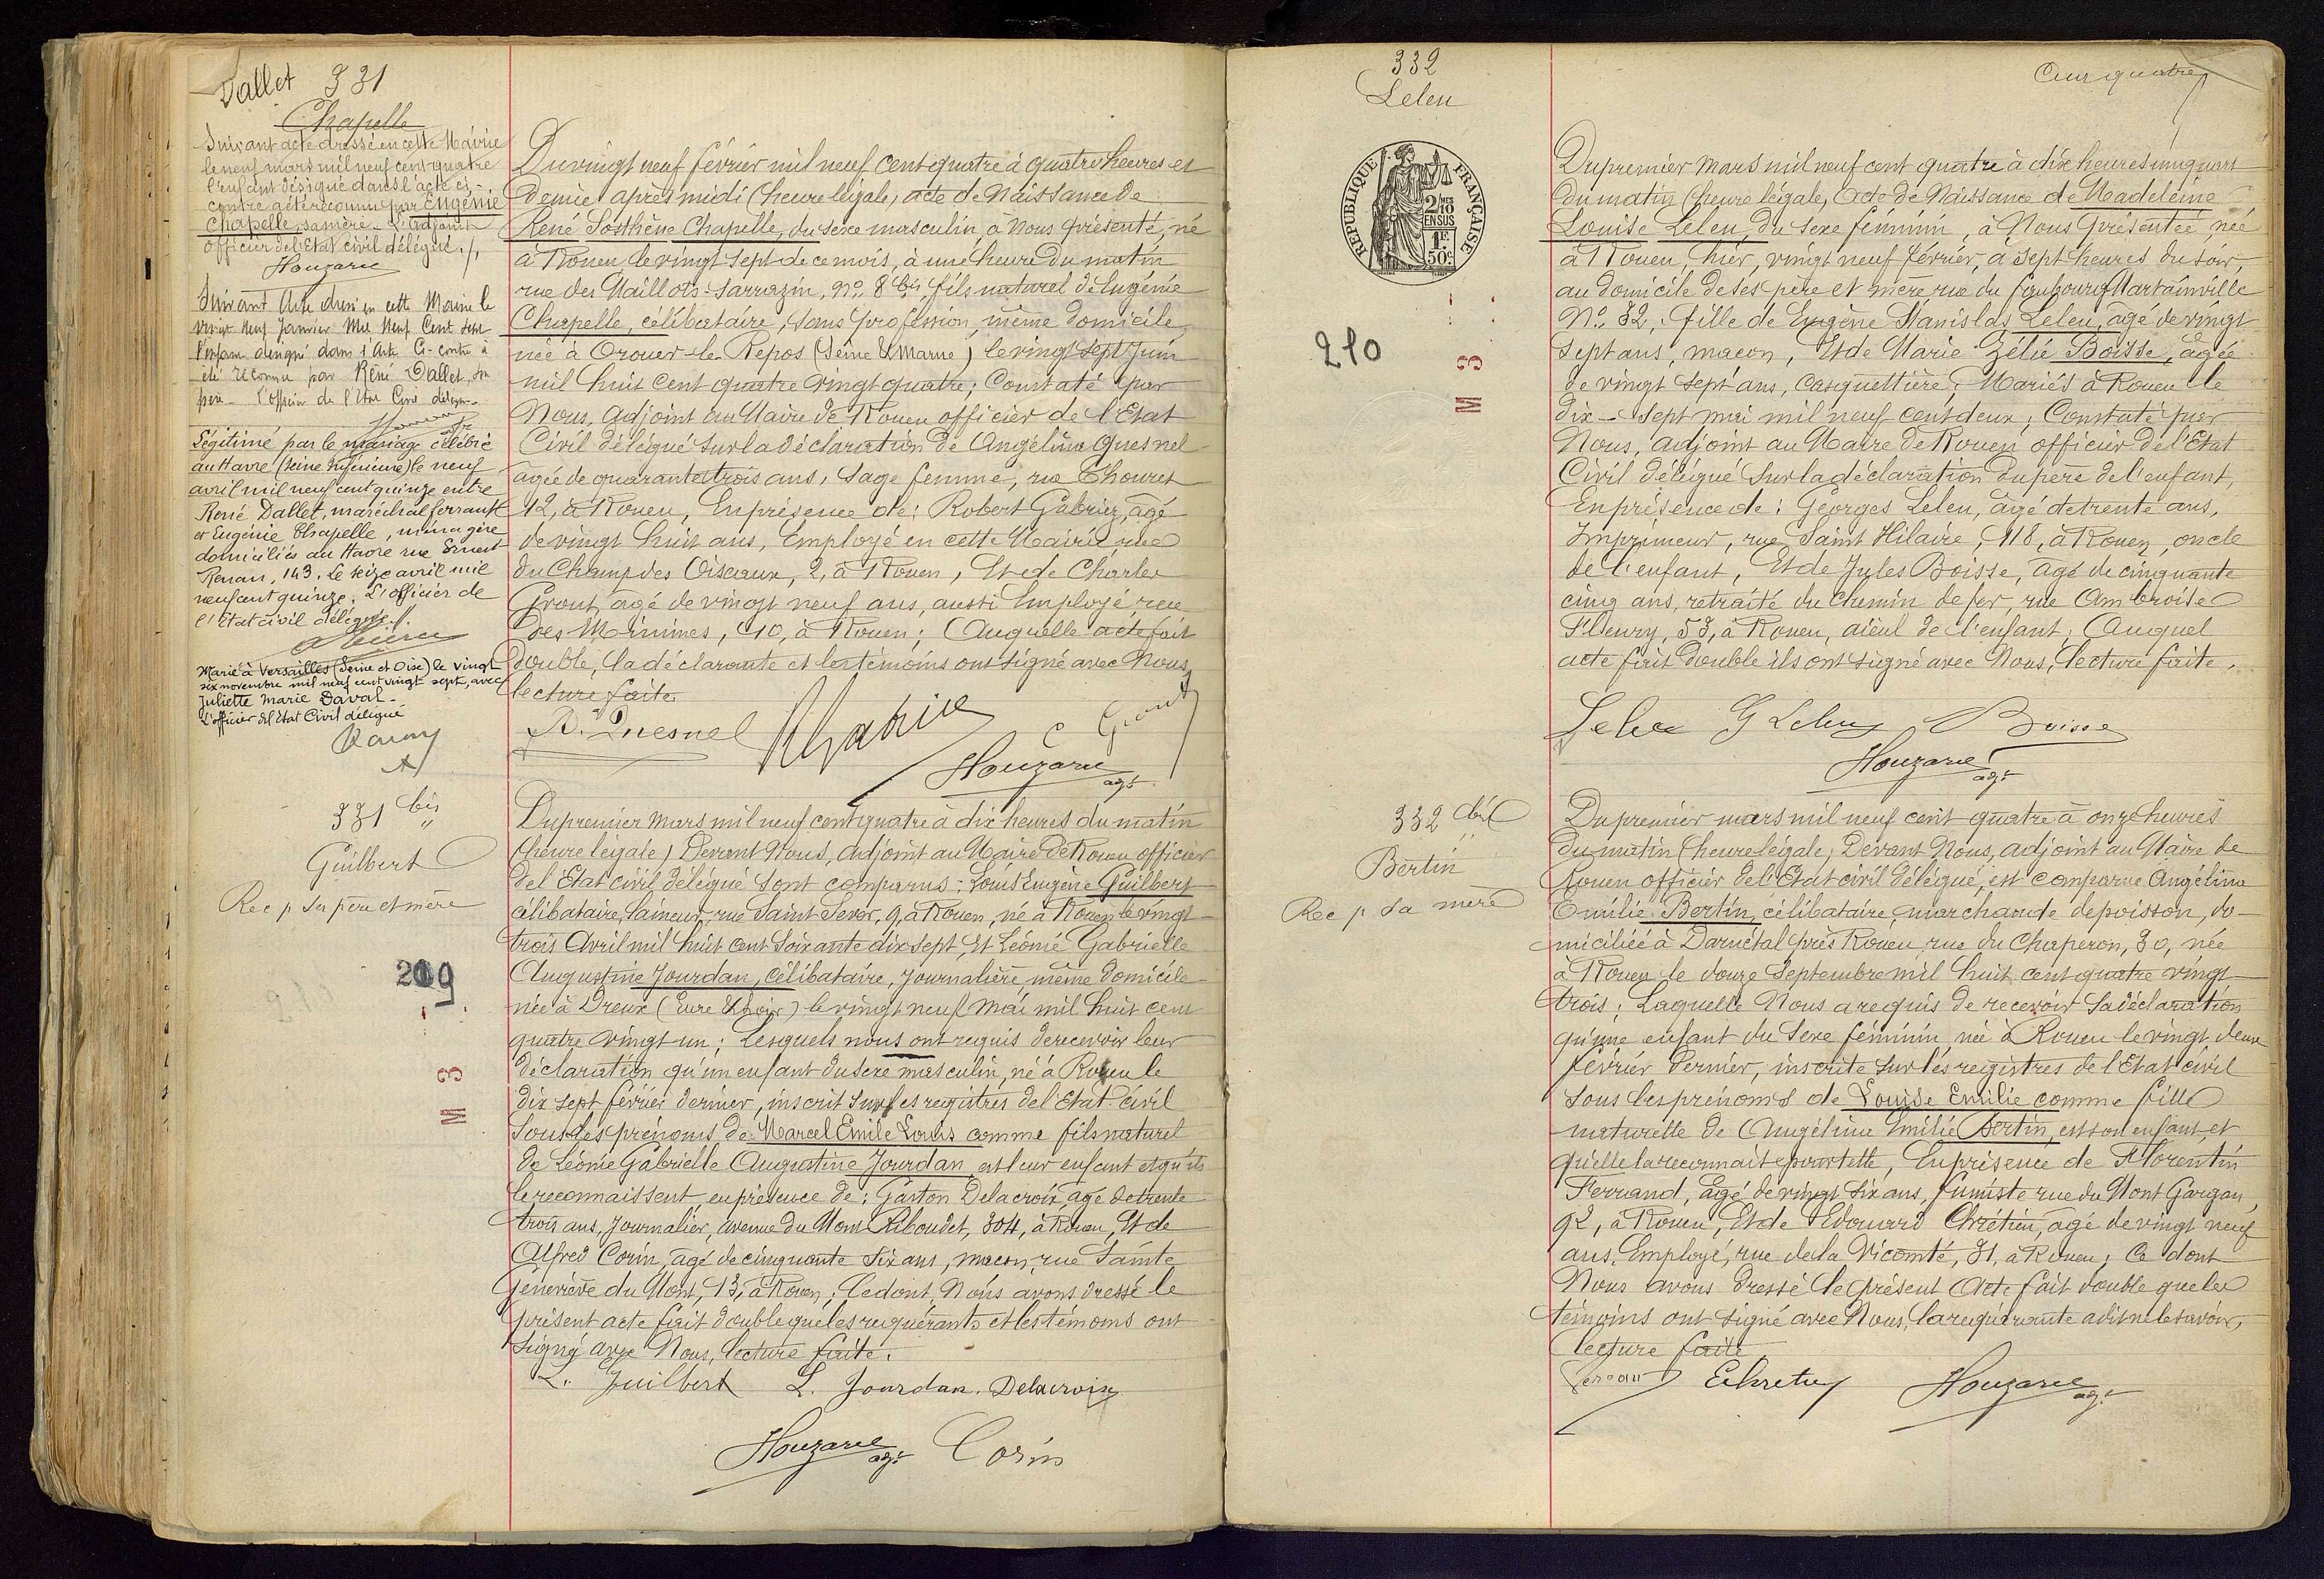 Dallet 331
Chapelle
Suivant acte dressé en cette Mairie
le neuf mars mil neuf cent quatre
l'enfant désigné dans l'acte ci-
contre a été reconnu par Eugénie
Chapelle, sa mère. L'adjoint
officier de l'Etat civil délégué ./.
Houzard
Suivant Acte dressé en cette Mairie le
vingt neuf Janvier Mil Neuf Cent
l'enfant désigné dans l'Acte Ci-contre à
été reconnu par René Dallet, son
père. l'officier de l'Etat Civil délégué.
Légitimé par le mariage célébré
au Havre (Seine Inférieure) le neuf
avril mil neuf cent quinze entre
René Dallet, maréchal ferrant
et Eugénie Chapelle, ménagère
domiciliés au Havre rue Ernest
Renan, 143. Le seize avril mil
neuf cent quinze. L'officier de
l'Etat civil délégué ./.
Marié à Versailles (Seine et Oise) le vingt
six novembre mil neuf cent vingt sept, avec
Juliette Marie Daval.
L'officier de l'état Civil délégué
Du vingt neuf février mil neuf cent quatre à quatre heures et
demie après midi (heure légale) acte de Naissance de
René Sosthène Chapelle, du sexe masculin, à Nous présenté, né
à Rouen le vingt sept de ce mois, à une heure du matin
rue des Maillots-Sarrazin, No. 8 bis, fils naturel de Eugénie
Chapelle, célibataire, sans profession, même domicile,
née à Crouer-le Repos (Seine & Marne) le vingt sept juin
mil huit cent quatre vingt quatre; Constaté par
Nous, adjoint au Maire de Rouen officier de l'Etat
Civil délégué sur la déclaration de Angélina Quesnel
agée de quarante trois ans, Sage femme, rue Thouret
12, à Rouen, En présence de: Robert Gabriez, âgé
de vingt huit ans, Employé en cette Mairie rue
du Champ des Oiseaux, 2, à Rouen, Et de Charles
Grout, âgé de vingt neuf ans, aussi Employé rue
des Minimes, 10, à Rouen; Auquel acte fait
double, la déclarante et les témoins ont signé avec Nous,
lecture faite
A. Quesnel C Grout
Houzard
adjt
331 bis
Guilbert
Rec p ses père et mère
209
M 3
Du premier mars mil neuf cent quatre à dix heures du matin
(heure légale) Devant Nous, adjoint au Maire de Rouen officier
de l'Etat civil délégué sont comparus: Louis Eugène Guilbert
célibataire, laineur, rue Saint Sever, 9, à Rouen, né à Rouen le vingt
trois Avril mil huit cent soixante dix sept, Et Léonie Gabrielle
Augustine Jourdan, célibataire, journalière, même domicile
née à Dreux (Eure & Loir) le vingt neuf Mai mil huit cent
quatre vingt un; Lesquels nous ont requis de recevoir leur
déclaration qu'un enfant du sexe masculin, né à Rouen le
dix sept février dernier, inscrit sur les registres de l'Etat civil
sous les prénoms de Marcel Emile Louis comme fils naturel
de Léonie Gabrielle Augustine Jourdan, est leur enfant et qu'ils
le reconnaissent, en présence de: Gaston Delacroix, âgé de trente
trois ans, journalier, avenue du Mont Riboudet, 304, à Rouen, Et de
Alfred Corin, âgé de cinquante six ans, maçon, rue Sainte
Geneviève du Mont, 13, à Rouen; Ce dont, Nous avons dressé le
présent acte fait double que les requérants et les témoins ont
signé avec Nous, lecture faite.
L. Guilbert L. Jourdan. Delacroix
Houzard
adjt Corin
332
Leleu
RÉPUBLIQUE FRANÇAISE
2/10 EN SUS
1F 50c
210
M 3
Cent quatre
Du premier Mars mil neuf cent quatre à dix heures un quart
du matin (heure légale) Acte de Naissance de Madeleine
Louise Leleu, du sexe féminin, à Nous présentée, née
à Rouen, hier, vingt neuf février, à sept heures du soir,
au domicile de ses père et mère rue du faubourg Martainville
No. 32, fille de Eugène Stanislas Leleu, âgé de vingt
sept ans, maçon, Et de Marie Zélie Boisse, âgée
de vingt sept ans, casquettière; Mariés à Rouen le
dix-sept mai mil neuf cent deux; Constaté par
Nous, adjoint au Maire de Rouen officier de l'Etat
Civil délégué sur la déclaration du père de l'enfant,
En présence de: Georges Leleu, âgé de trente ans,
Imprimeur, rue Saint Hilaire, 118, à Rouen, oncle
de l'enfant, Et de Jules Boisse, âgé de cinquante
cinq ans, retraité du chemin de fer, rue Ambroise
Fleury, 53, à Rouen, aïeul de l'enfant; Auquel
acte fait double ils ont signé avec Nous, lecture faite.
Leleu G Leleu Boisse
Houzard
adjt
332 bis
Bertin
Rec p sa mère
Du premier mars mil neuf cent quatre à onze heures
du matin (heure légale) Devant Nous, adjoint au Maire de
Rouen officier de l'Etat civil délégué, est comparue Angélina
Emilie Bertin, célibataire, marchande de poisson, do-
miciliée à Darnétal près Rouen, rue du Chaperon, 30, née
à Rouen le douze Septembre mil huit cent quatre vingt
trois; Laquelle Nous a requis de recevoir sa déclaration
qu'une enfant du sexe féminin, née à Rouen le vingt deux
février dernier, inscrite sur les registres de l'Etat civil
sous les prénoms de Louise Emilie comme fille
naturelle de Angélina Emilie Bertin, est son enfant, et
qu'elle la reconnait pour telle, En présence de Florentin
Ferrand, âgé de vingt six ans, fumiste rue du Mont Gargan,
92, à Rouen, Et de Edouard Chrétien, âgé de vingt neuf
ans, Employé, rue de la Vicomté, 31, à Rouen; Ce dont
Nous avons dressé le présent Acte fait double que les
témoins ont signé avec Nous, la requérante a dit ne le savoir,
lecture faite
Houzard
adjt